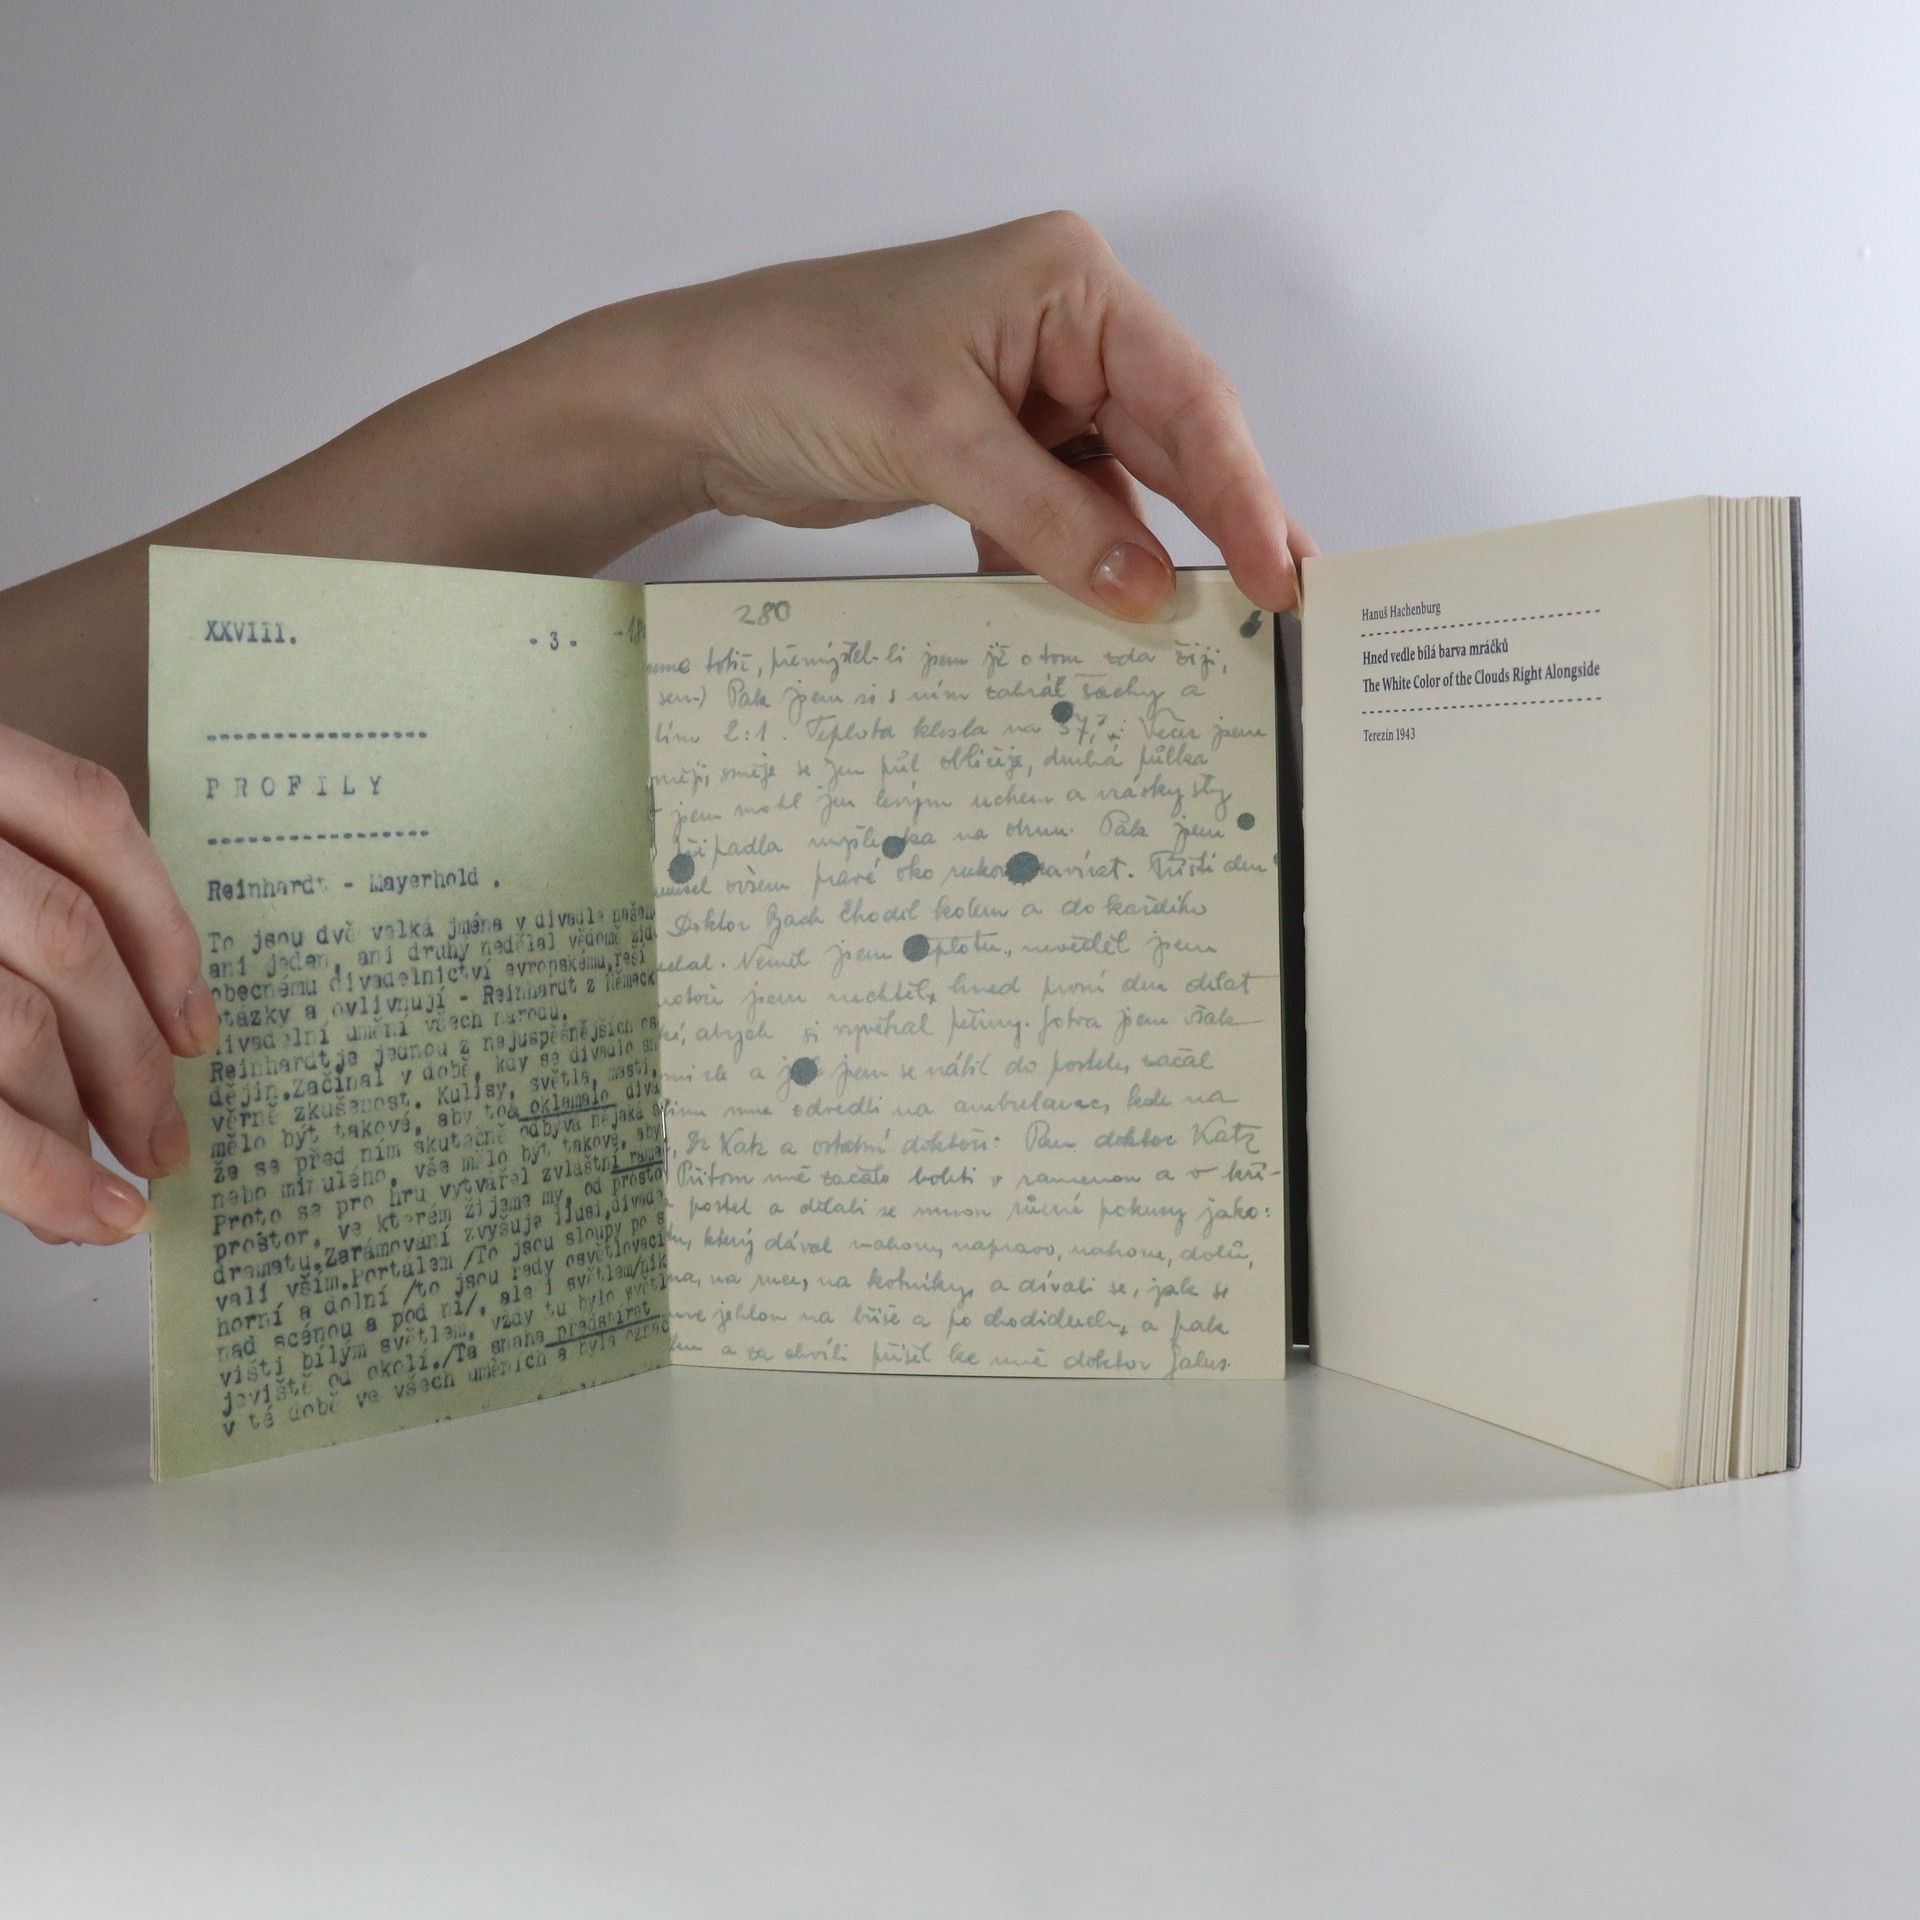 XXVIII.
- 3 -
-----------------
PROFILY
-----------------
Reinhardt - Mayerhold .
To jsou dvě velká jména v divadle našeho
ani jeden, ani druhý nedělal vědomě žid
obecnému divadelnictví evropskému, řeší
otázky a ovlivňují - Reinhardt z Německ
divadelní umění všech národů.
Reinhardt je jednou z nejúspěšnějších os
dějin. Začínal v době, kdy se divadlo sn
věrně zkušenost. Kulisy, světla, masti,
mělo být takové, aby to oklamalo divá
že se před ním skutečně odbývá nějaká
nebo minulého, vše mělo být takové, aby
Proto se pro hru vytvářel zvláštní ráme
prostor, ve kterém žijeme my, od prosto
dramatu. Zarámovaní zvyšuje ilusi, divade
valí vším. Portálem /To jsou sloupy po s
horní a dolní /to jsou řady osvětlovací
nad scénou a pod ní/, ale i světlem/nik
višti bílým světlem, vždy tu bylo světl
jeviště od okolí./Ta snaha předstírat
v té době ve všech uměních a byla označ
280
totiž, přemýšlel-li jsem již o tom zda žiji,
sem.) Pak jsem si s ním zahrál šachy a
2:1. Teplota klesla na 37, Večer jsem
směje se jen půl obličeje, druhá půlka
jsem mohl jen levým uchem a vrásky
padla na Pak jsem
ovšem pravé oko rukou zavírat. Třetí den
Doktor Bach chodil kolem a do každého
Neměl jsem teplotu, nevěděl jsem
jsem nechtěl, hned první den dělat
abych si vypětral peřiny. Sotva jsem však
a jsem se vrátil do postele, začal
mne odvedli na ambulanci, kde na
Dr Katz a ostatní doktoři: Pan doktor Katz
Přitom mě začalo boleti v ramenou a v kří-
postel a dělali se mnou různé pokusy jako:
který dával nahoru, napravo, nahoru, dolů,
na, na ruce, na kotníky, a dívali se, jak se
jehlou na břiše a po chodidlech, a pak
a za chvíli přišel ke mně doktor Salus.
Hanuš Hachenburg
Hned vedle bílá barva mráčků
The White Color of the Clouds Right Alongside
Terezín 1943